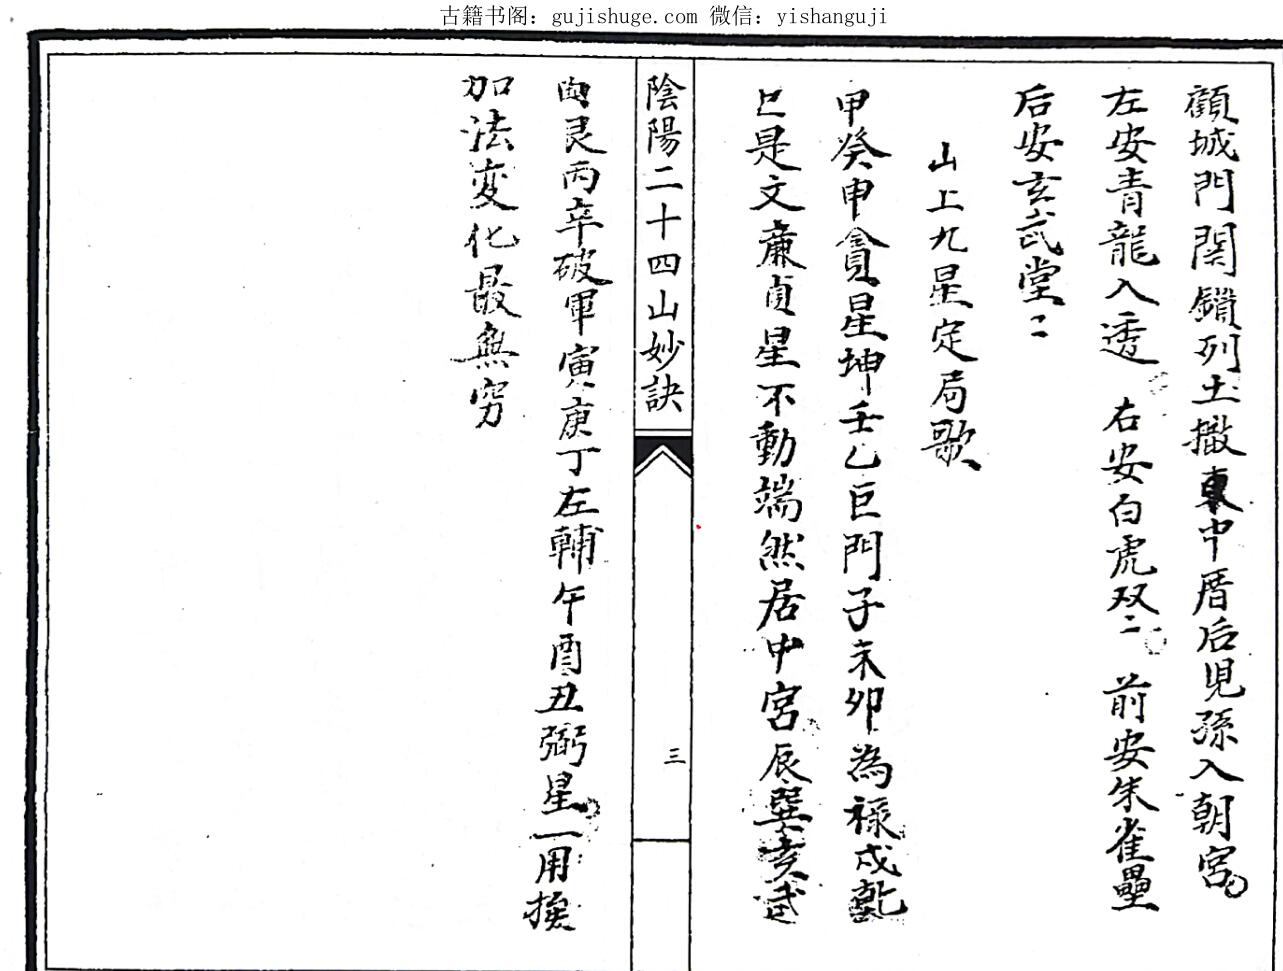 古籍书阁：gujishuge.com 微信：yishanguji
顧城門関鎖列土撒東中厝后児孫入朝宮
左安青龍入透 右安白虎双〻 前安朱雀壘
后安玄武堂〻
山上九星定局歌
甲癸申貪星坤壬乙巨門子未卯為祿戍乾
巳是文廉貞星不動端然居中宮辰巽亥武
曲艮丙辛破軍寅庚丁左輔午酉丑弼星一用換
加法変化最無窮
陰陽二十四山妙訣
三